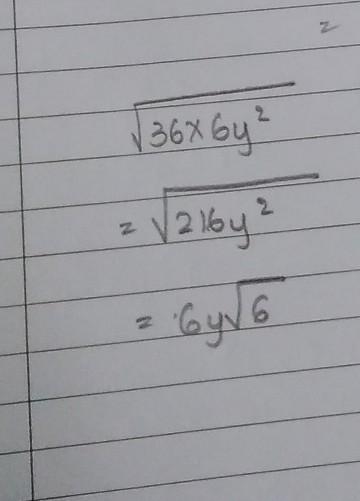 =
√36×6y²
= √216y²
= 6y√6